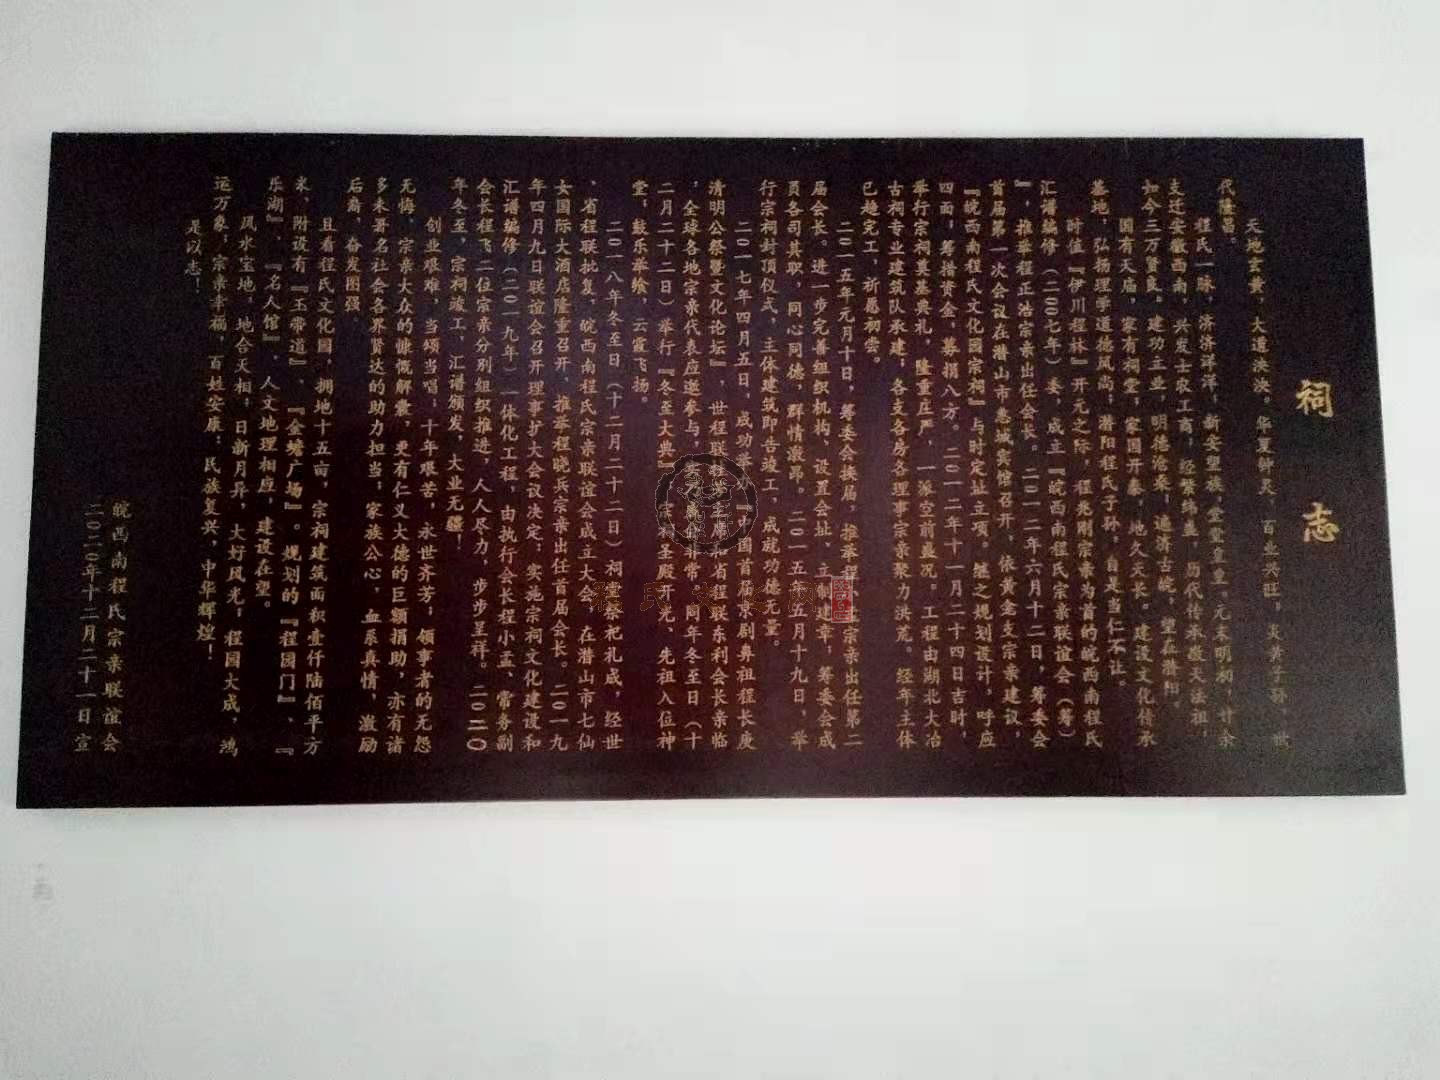 祠志
天地玄黄，大道泱泱。华夏钟灵，百业兴旺，炎黄子孙，世
代隆昌。
程氏一脉，济济洋洋，新安望族，堂堂皇皇。元末明初，廿余
支迁安徽西南，兴发士农工商，经繁绵盖，历代传承敬天法祖，
如今三万贤良。建功立业，明德沧桑，追溯古皖，望在潜阳。
国有天庙，家有祠堂，家国开泰，地久天长。建设文化传承
基地，弘扬理学道德风尚；潜阳程氏子孙，自是当仁不让。
时值『伊川程林』开元之际，程兆刚宗亲为首的皖西南程氏
汇谱编修（二〇〇七年）委，成立『皖西南程氏宗亲联谊会（筹）
』，推举程正浩宗亲出任会长。二〇一二年六月十二日，筹委会
首届第一次会议在潜山市惠城宾馆召开，依黄金支宗亲建议，
『皖西南程氏文化园宗祠』与时定址立项。继之规划设计，呼应
四面，筹措资金，募捐八方。二〇一二年十一月二十四日吉时，
举行宗祠奠基典礼，隆重庄严，一派空前盛况。工程由湖北大冶
古祠专业建筑队承建，各支各房各理事宗亲聚力洪荒。经年主体
已趋完工，祈愿初尝。
二〇一五年元月十日，筹委会换届，推举程小 宗亲出任第二
届会长。进一步完善组织机构、设置会址、立制建章；筹委会成
员各司其职，同心同德，群情激昂。二〇一五年五月十九日，举
行宗祠封顶仪式，主体建筑即告竣工，成就功德无量。
二〇一七年四月五日，成功举办『中国首届京剧鼻祖程长庚
清明公祭暨文化论坛』，世程联扶 主席和省程联东利会长亲临
，全球各地宗亲代表应邀参与， 非常。同年冬至日（十
二月二十二日）举行『冬至大典』，宗祠圣殿开光、先祖入位神
堂，鼓乐华绘，云霞飞扬。
二〇一八年冬至日（十二月二十二日）祠堂祭祀礼成，经世
、省程联批复，皖西南程氏宗亲联谊会成立大会，在潜山市七仙
女国际大酒店隆重召开，推举程晓兵宗亲出任首届会长。二〇一九
年四月九日联谊会召开理事扩大会议决定：实施宗祠文化建设和
汇谱编修（二〇一九年）一体化工程，由执行会长程小孟、常务副
会长程飞二位宗亲分别组织推进，人人尽力，步步呈祥。二〇二〇
年冬至，宗祠竣工，汇谱颁发，大业无疆！
创业艰难，当颂当唱。十年艰苦，永世齐芳；领事者的无怨
无悔，宗亲大众的慷慨解囊，更有仁义大德的巨额捐助，亦有诸
多未署名社会各界贤达的助力担当，家族公心，血系真情，激励
后裔，奋发图强。
且看程氏文化园，拥地十五亩，宗祠建筑面积壹仟陆佰平方
米，附设有『玉带道』、『金塘广场』。规划的『程园门』、『
乐湖』、『名人馆』，人文地理相应，建设在望。
风水宝地，地合天相；日新月异，大好风光；程园大成，鸿
运万象；宗亲幸福，百姓安康；民族复兴，中华辉煌！
是以志！
皖西南程氏宗亲联谊会
二〇二〇年十二月二十一日宣